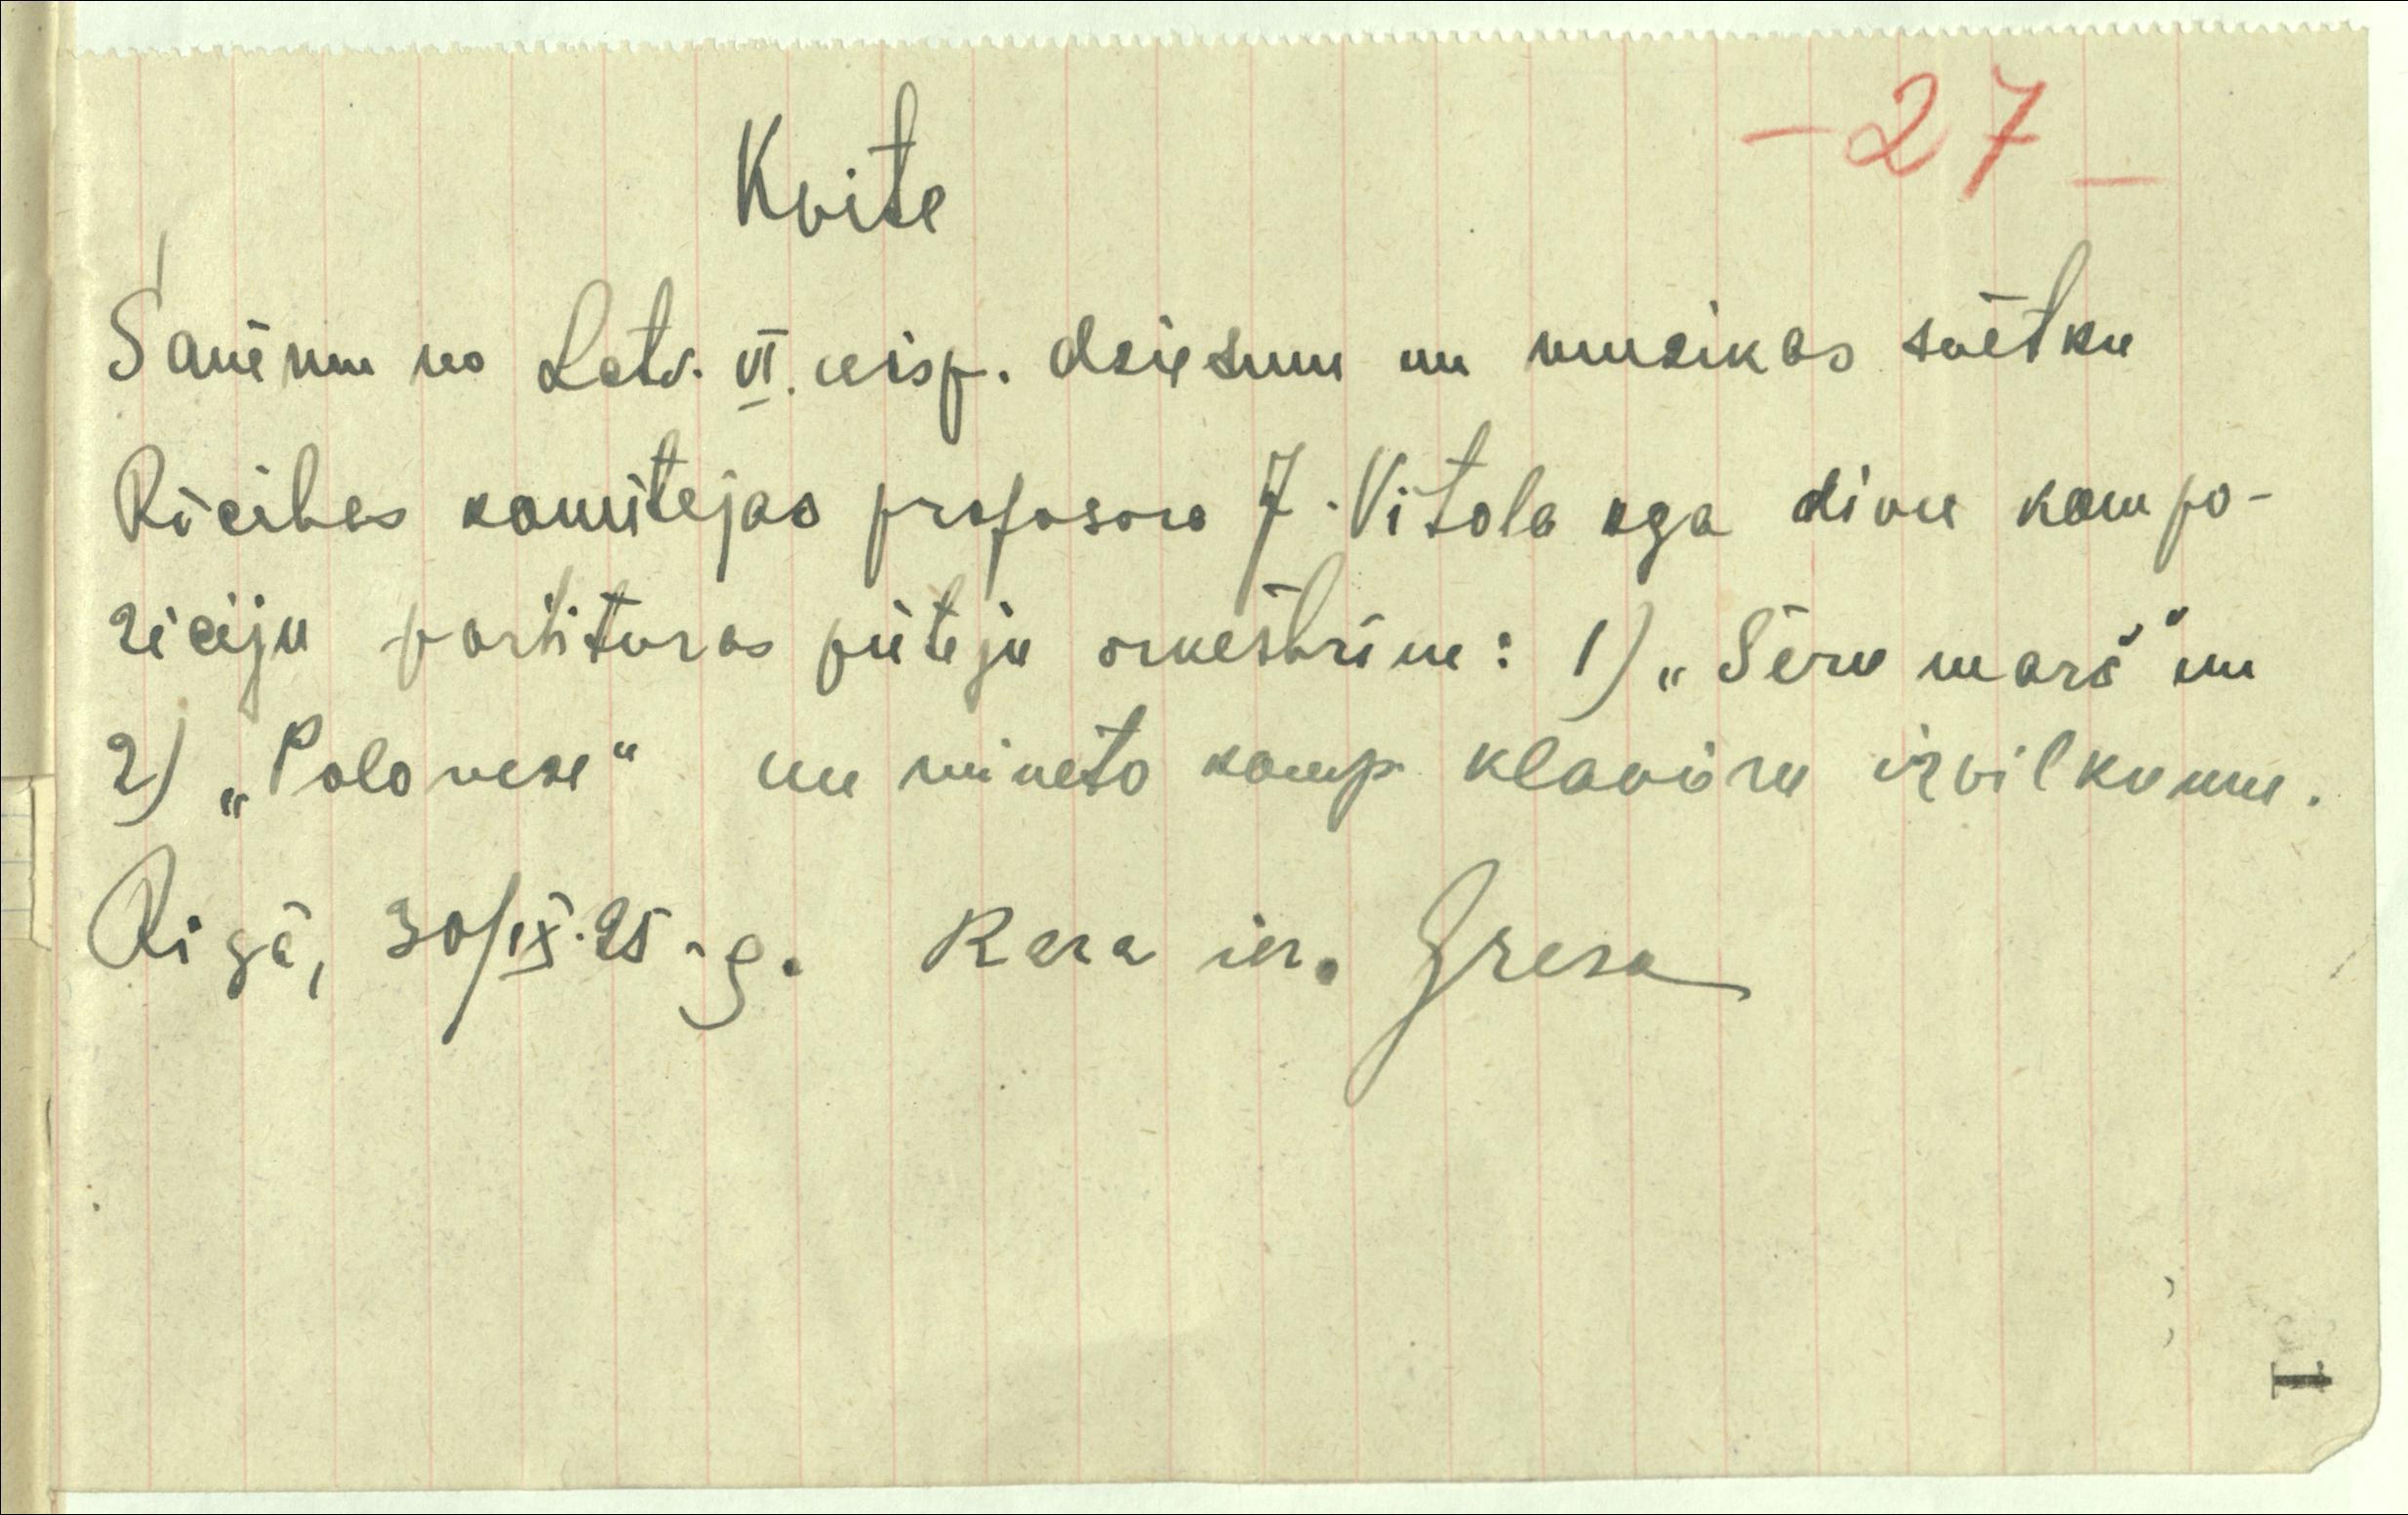 -27-
Kvite
Saņēmu no Latv. VI. visp. dziesmu un muzikas svētku
Rīcības komitejas profesora J. Vitola kga divu kompo-
ziciju partituras pūtēju orķestrim: 1) „Sēru marš" un
2) „Polonese" un minēto komp klavieru izvilkumu.
Rigā, 30/IX.25.g. Kara ier.
I